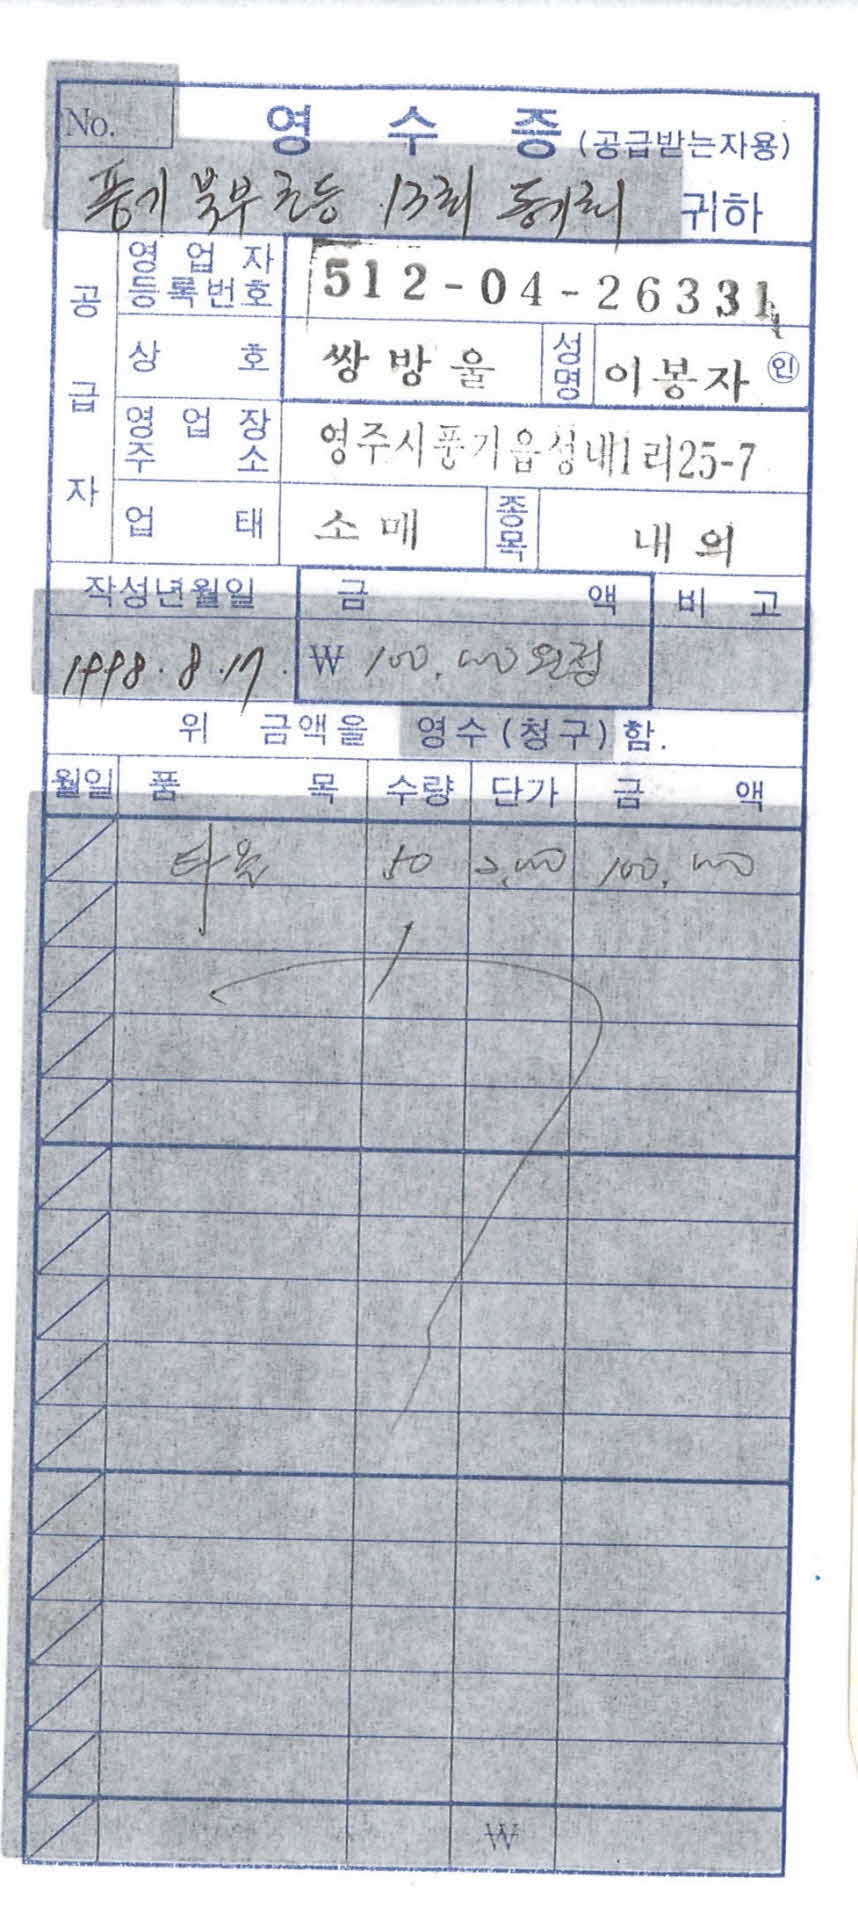 No.
영 수 증 (공급받는자용)
풍기 북부 초등 13회 동기회 귀하
공급자
영업자등록번호 512-04-26331
상호 쌍방울 성명 이봉자 ㊞
영업장주소 영주시풍기읍성내1리25-7
업태 소매 종목 내의
작성년월일 금액 비고
1998.8.17. ₩ 100,000원정
위 금액을 영수(청구)함.
월일 품목 수량 단가 금액
타올 50 2,000 100,000
₩